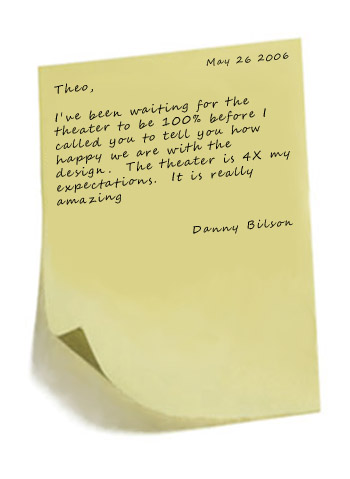 May 26 2006
Theo,
I've been waiting for the
theater to be 100% before I
called you to tell you how
happy we are with the
design. The theater is 4X my
expectations. It is really
amazing
Danny Bilson